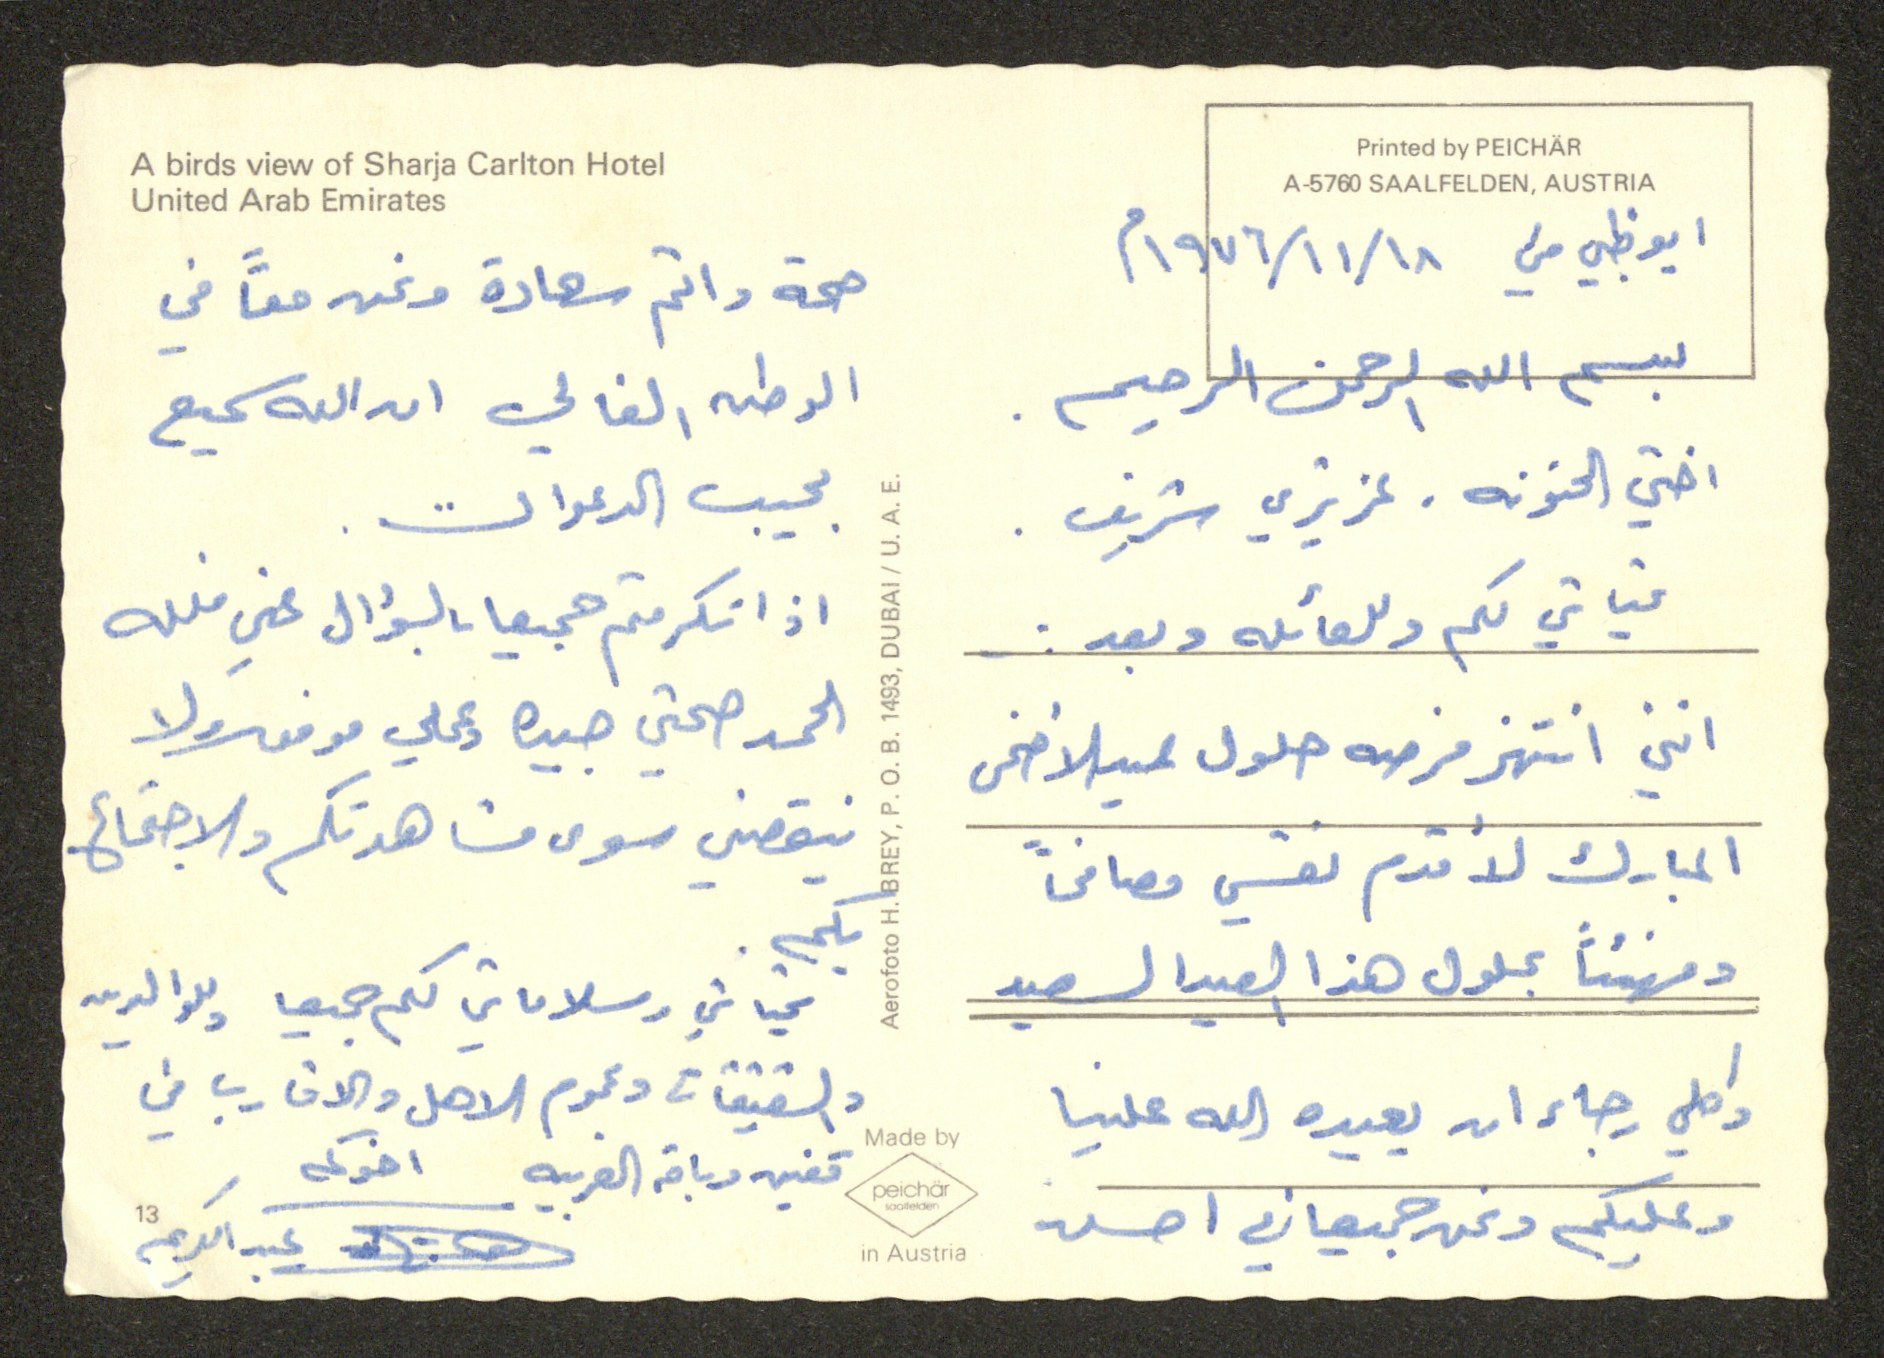 A birds view of Sharja Carlton Hotel
United Arab Emirates
Printed by PEICHÄR
A-5760 SAALFELDEN, AUSTRIA
ابوظبي في ١٨/١١/١٩٧٦م
بسم الله الرحمن الرحيم .
اختي الحنونه . عزيزي شريف .
تحياتي لكم وللعائله وبعد :ـ
انني انتهز فرصه حلول عيد الأضحى
المبارك لأقدم نفسي مصافحاً
ومهنئاً بحلول هذا العيد السعيد
وكلي رجاء ان يعيده الله علينا
وعليكم ونحن جميعا في احسن
صحة واتم سعادة ونحن معاً في
الوطن الغالي ان الله سميع
مجيب الدعوات .
اذا تكرمتم جميعا بالسؤال عني فلله
الحمد صحتي جيده وعملي موفق ولا
ينقصني سوى مشاهدتكم والاجتماع
بكم .
تحياتي وسلاماتي لكم جميعا وللوالدين
والشقيقات وعموم الاهل والاقارب في
قفين وباقة الغربيه اخوكم
عبد الكريم
13
Aerofoto H. BREY, P. O. B. 1493, DUBAI / U. A. E.
Made by
peichär
saalfelden
in Austria